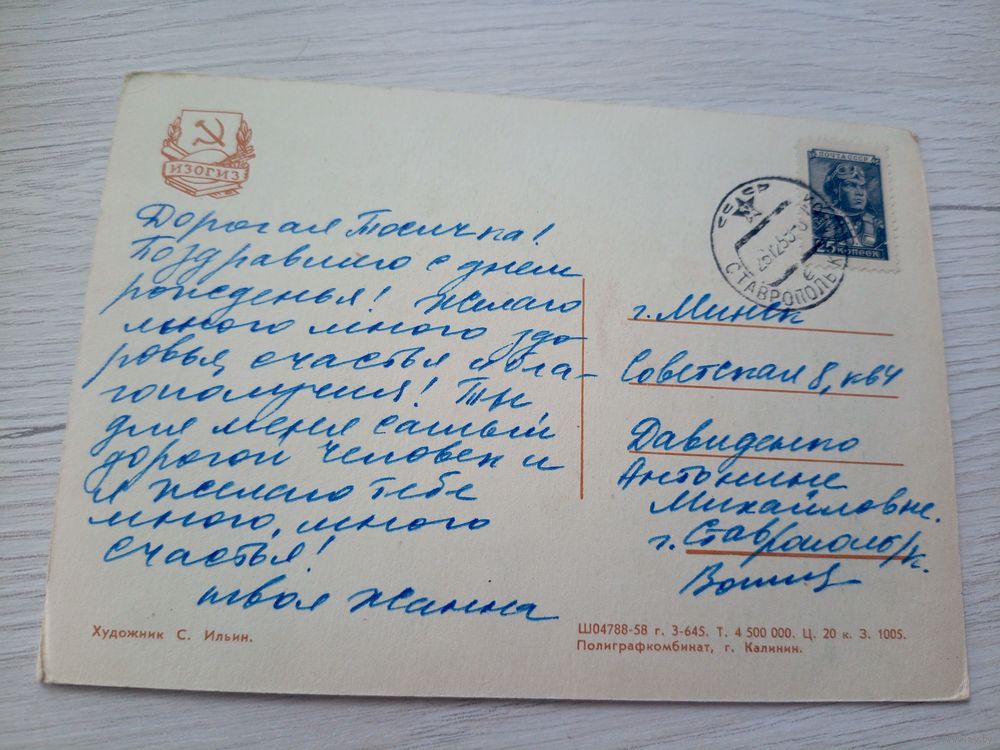 ИЗОГИЗ
ПОЧТА СССР
25 КОПЕЕК
СТАВРОПОЛЬ
Дорогая Тосичка!
Поздравляю с днем
рожденья! Желаю
много много здо
ровья, счастья и бла-
гополучия! Ты
для меня самый
дорогой человек и
я желаю тебе
много, много
счастья!
твоя Жанна
г. Минск
Советская 8, кв 4
Давиденко
Антонине
Михайловне.
г. Ставрополь/к.
Художник С. Ильин.
Ш04788-58 г. 3-645. Т. 4 500 000. Ц. 20 к. З. 1005.
Полиграфкомбинат, г. Калинин.